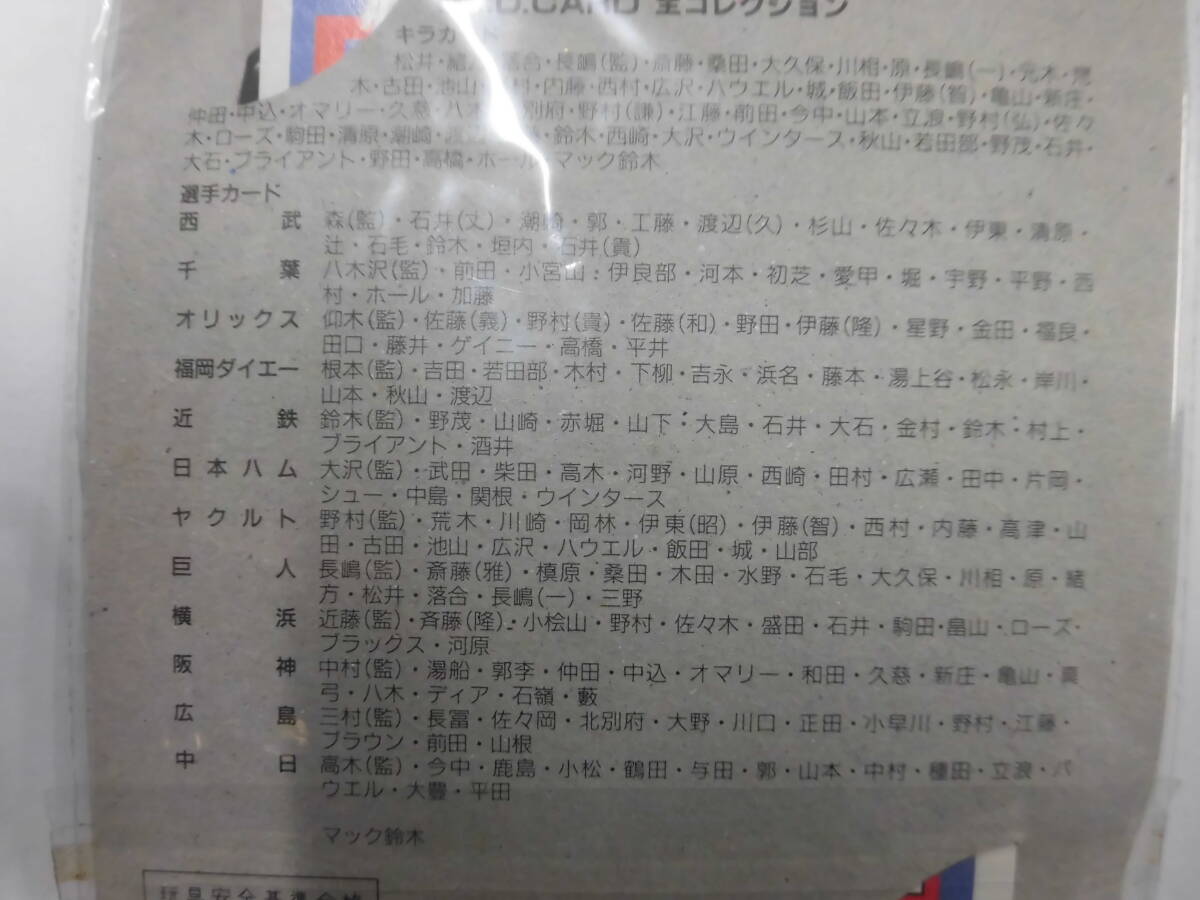 O.CARD 全コレクション
キラカード
松井・緒方・落合・長嶋(監)・斎藤・桑田・大久保・川相・原・長嶋(一)・元木・荒
木・古田・池山・村・内藤・西村・広沢・ハウエル・城・飯田・伊藤(智)・亀山・新庄・
仲田・中込・オマリー・久慈・八木・別府・野村(謙)・江藤・前田・今中・山本・立浪・野村(弘)・佐々
木・ローズ・駒田・清原・潮崎・渡辺・鈴木・西崎・大沢・ウインタース・秋山・若田部・野茂・石井・
大石・ブライアント・野田・高橋・ホール・マック鈴木
選手カード
西武 森(監)・石井(丈)・潮崎・郭・工藤・渡辺(久)・杉山・佐々木・伊東・清原・
辻・石毛・鈴木・垣内・石井(貴)
千葉 八木沢(監)・前田・小宮山:伊良部・河本・初芝・愛甲・堀・宇野・平野・西
村・ホール・加藤
オリックス 仰木(監)・佐藤(義)・野村(貴)・佐藤(和)・野田・伊藤(隆)・星野・金田・福良・
田口・藤井・ゲイニー・高橋・平井
福岡ダイエー 根本(監)・吉田・若田部・木村・下柳・吉永・浜名・藤本・湯上谷・松永・岸川・
山本・秋山・渡辺
近鉄 鈴木(監)・野茂・山崎・赤堀・山下・大島・石井・大石・金村・鈴木・村上・
ブライアント・酒井
日本ハム 大沢(監)・武田・柴田・高木・河野・山原・西崎・田村・広瀬・田中・片岡・
シュー・中島・関根・ウインタース
ヤクルト 野村(監)・荒木・川崎・岡林・伊東(昭)・伊藤(智)・西村・内藤・高津・山
田・古田・池山・広沢・ハウエル・飯田・城・山部
巨人 長嶋(監)・斎藤(雅)・槙原・桑田・木田・水野・石毛・大久保・川相・原・緒
方・松井・落合・長嶋(一)・三野
横浜 近藤(監)・斉藤(隆)・小桧山・野村・佐々木・盛田・石井・駒田・畠山・ローズ・
ブラッグス・河原
阪神 中村(監)・湯船・郭李・仲田・中込・オマリー・和田・久慈・新庄・亀山・真
弓・八木・ディア・石嶺・藪
広島 三村(監)・長冨・佐々岡・北別府・大野・川口・正田・小早川・野村・江藤・
ブラウン・前田・山根
中日 高木(監)・今中・鹿島・小松・鶴田・与田・郭・山本・中村・種田・立浪・パ
ウエル・大豊・平田
マック鈴木
玩具安全基準合格